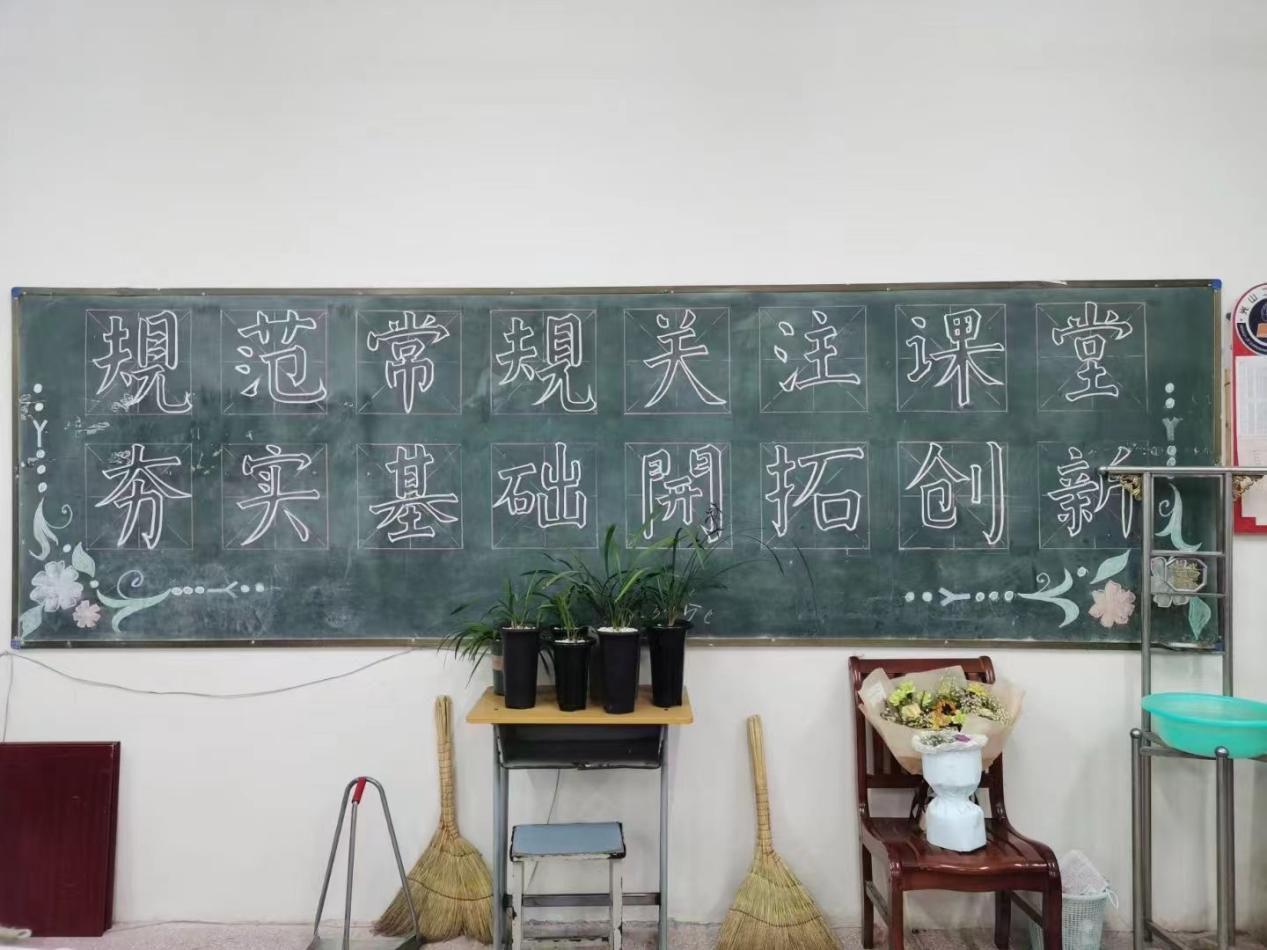 規范常規关注课堂
夯实基础開拓创新